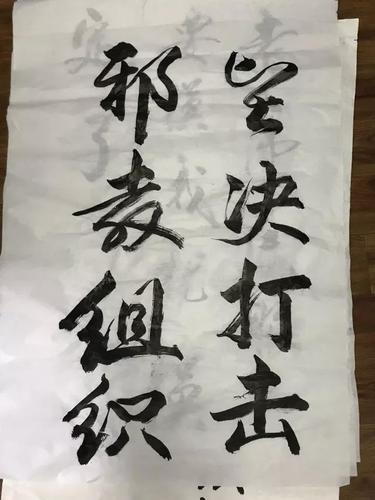 坚决打击
邪教组织